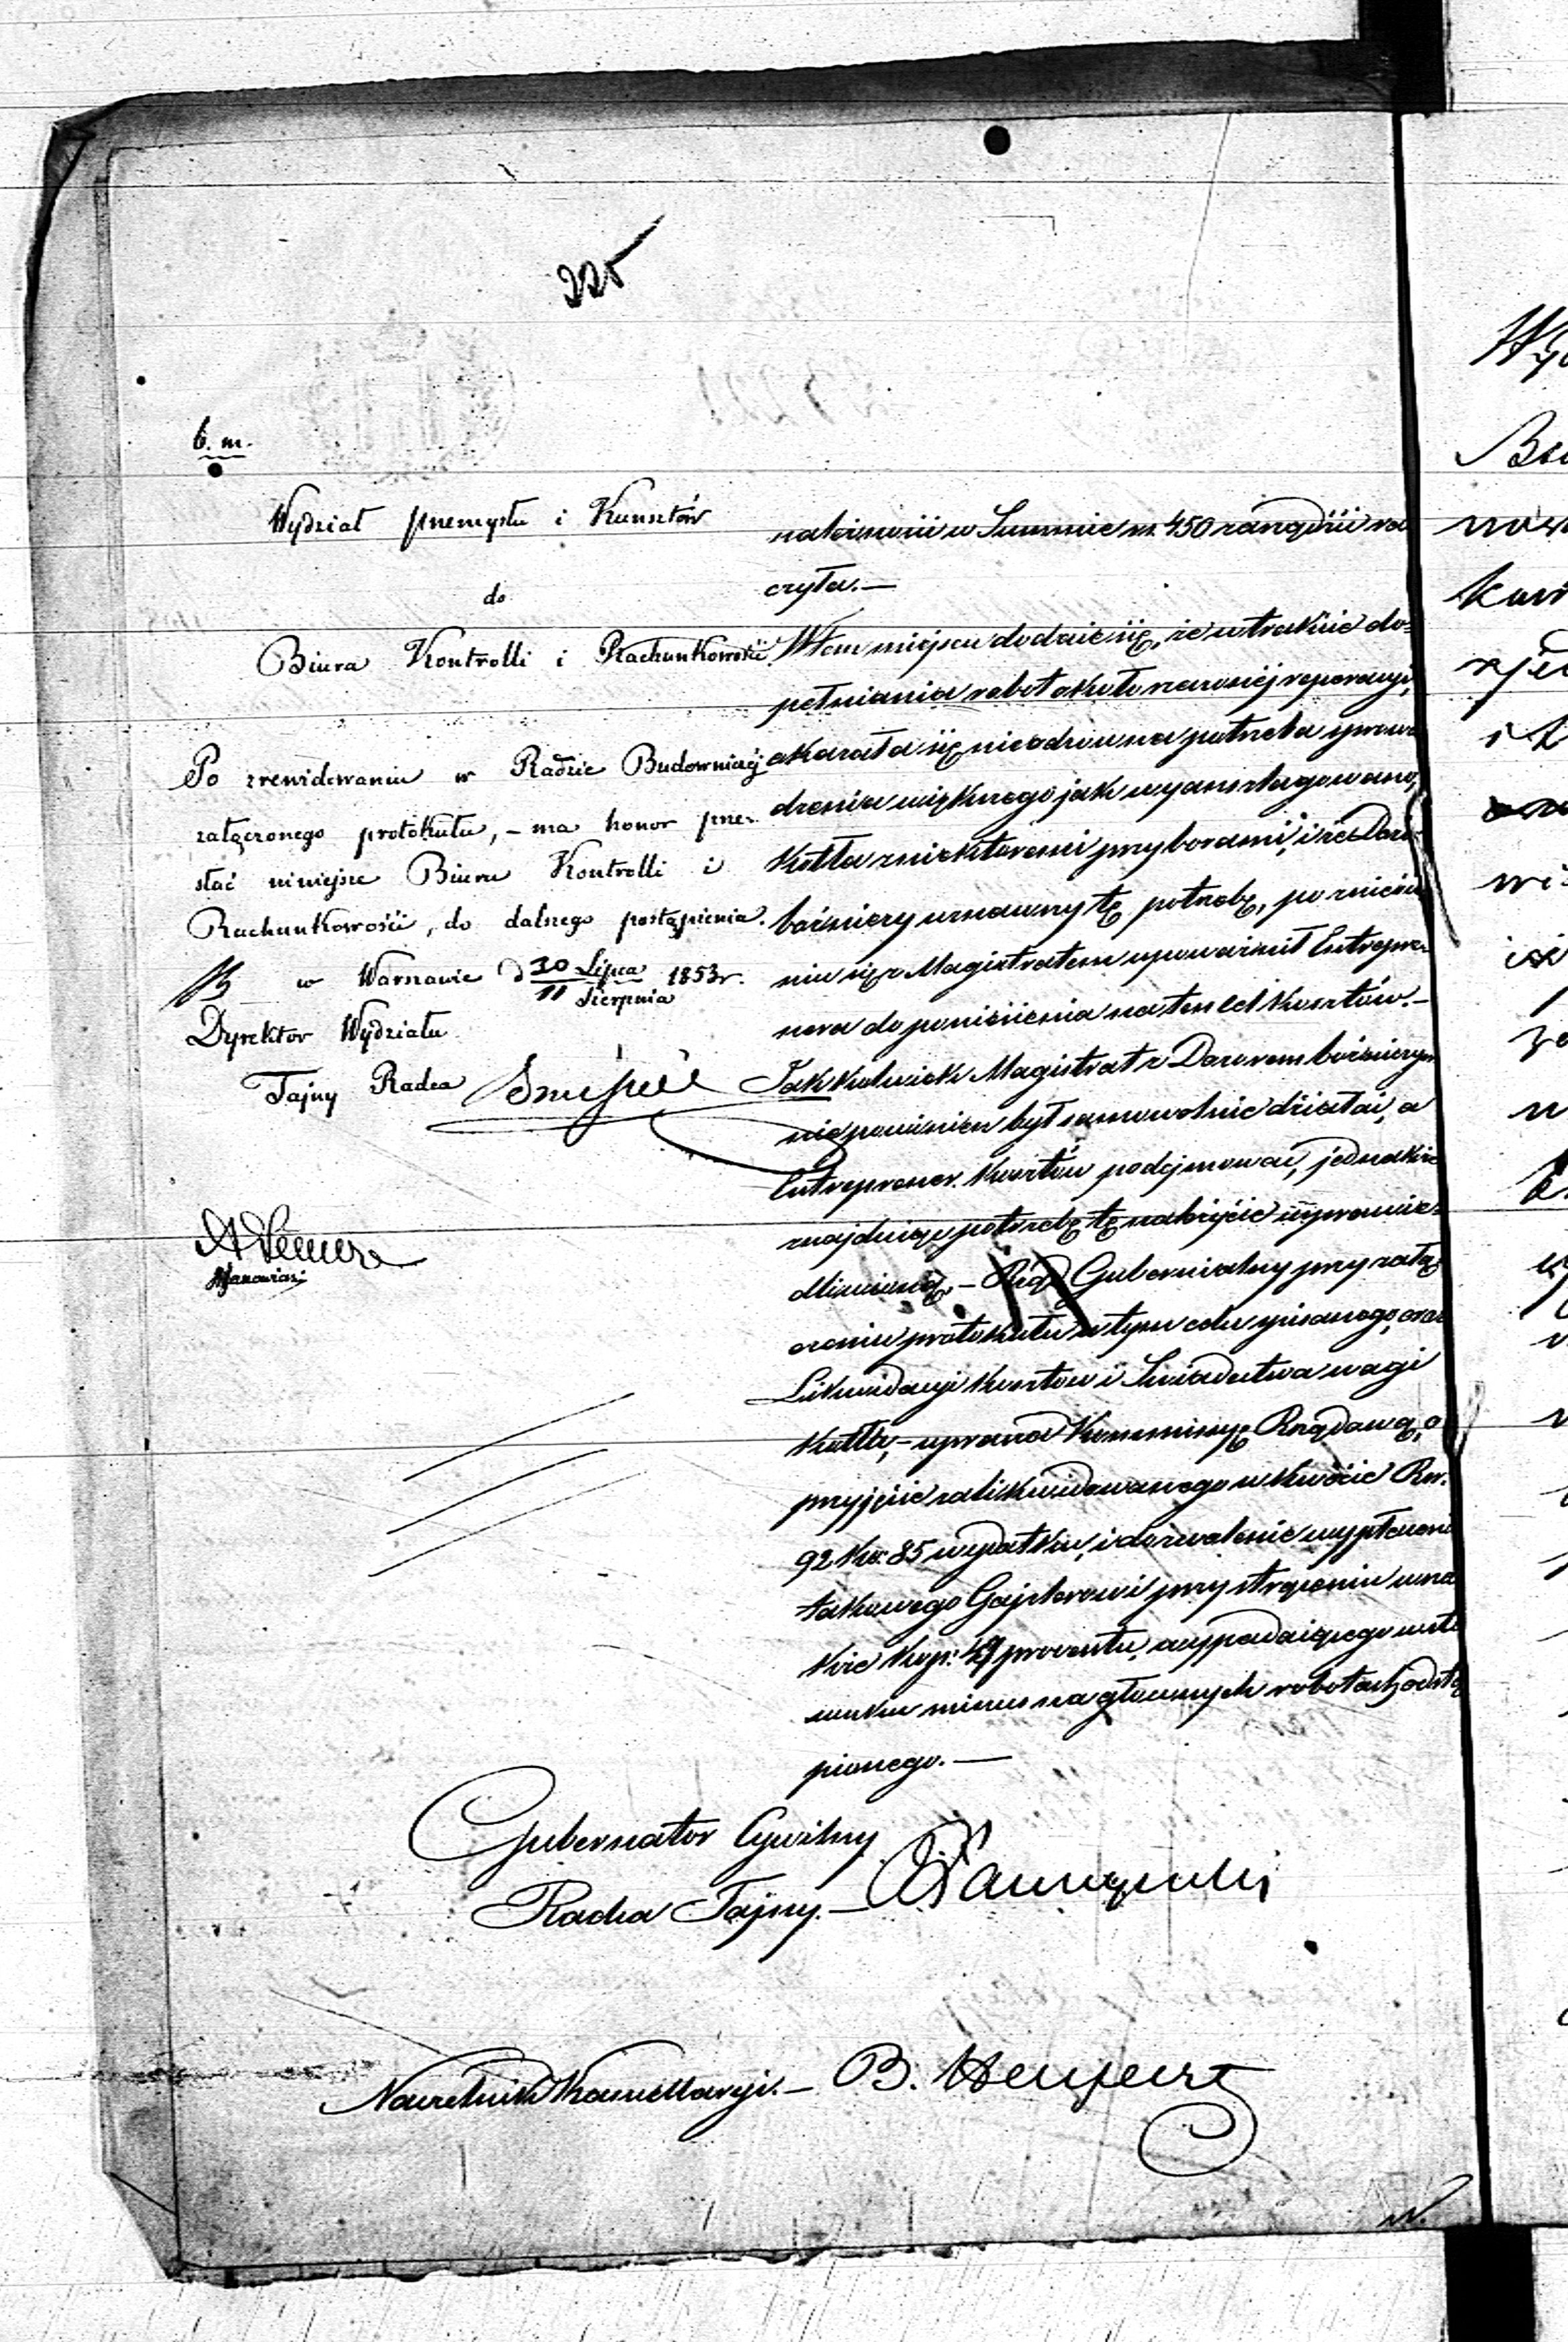 225
b. m.
Wydział przemysłu i Kunsztów
do
Biura Kontrolli i Rachunkowości
Po zrewidowaniu w Radzie Budowniczej
załączonego protokułu, – ma honor prze-
słać niniejsze Biuru Kontrolli i
Rachunkowości, do dalszego postąpienia.
w Warszawie d 30 Lipca / 11 Sierpnia 1853r.
Dyrektor Wydziału
Tajny Radca
należności w Summie rs. 450 zarządzić ra
czyła. —
W tem miejscu dodaie się, że w trakcie do-
pełniania robot około rzeczonéj reperacyi,
okazała się nieodzowna potrzeba sprowa
dzenia większego jak wyanszlagowano,
Kotła z niektóremi przyborami, i że Dozór
bóżniczy uznawszy tę potrzebę, po zniesie
niu się z Magistratem upoważnił Entrepre-
nera do poniesienia na ten cel kosztów. —
Jakkolwiek Magistrat z Dozorem bóżniczym
nie powinien był samowolnie działać, a
Entreprener kosztów podejmować, jednakże
znajdując potrzebę tę należycie usprawie-
dliwioną, — Rząd Gubernialny przy załą
czeniu protokułu w tym celu spisanego, oraz
Likwidacyi kosztów i Świadectwa wagi
Kotła, – uprasza Kommissyę Rządową, o
przyjęcie zalikwidowanego w kwocie Rs.
92 ko: 85 wydatku, i dozwolenie wypłacenia
takowego Gajslerowi przy strąceniu
kop: procentu, wypadaiącego w sto
sunku minus na głównych robotach odstą
pionego. —
Gubernator Cywilny
Radca Tajny. —
Naczelnik Kancellaryi. — B.